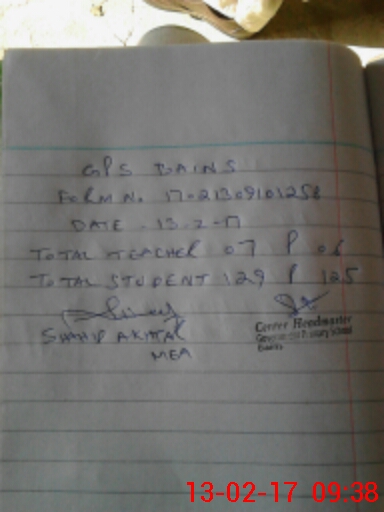 GPS BAINS
FORM No. 17-021309101256
DATE . 13-2-17
TOTAL TEACHER 07 P 06
TOTAL STUDENT 129 P 125
SHAHID AKHTAR
MEA
Center Headmaster
Government Primary School
Bains
13-02-17 09:38